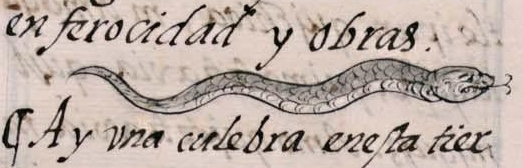 en ferocidad y obras.
¶ Ay vna culebra enesta tier